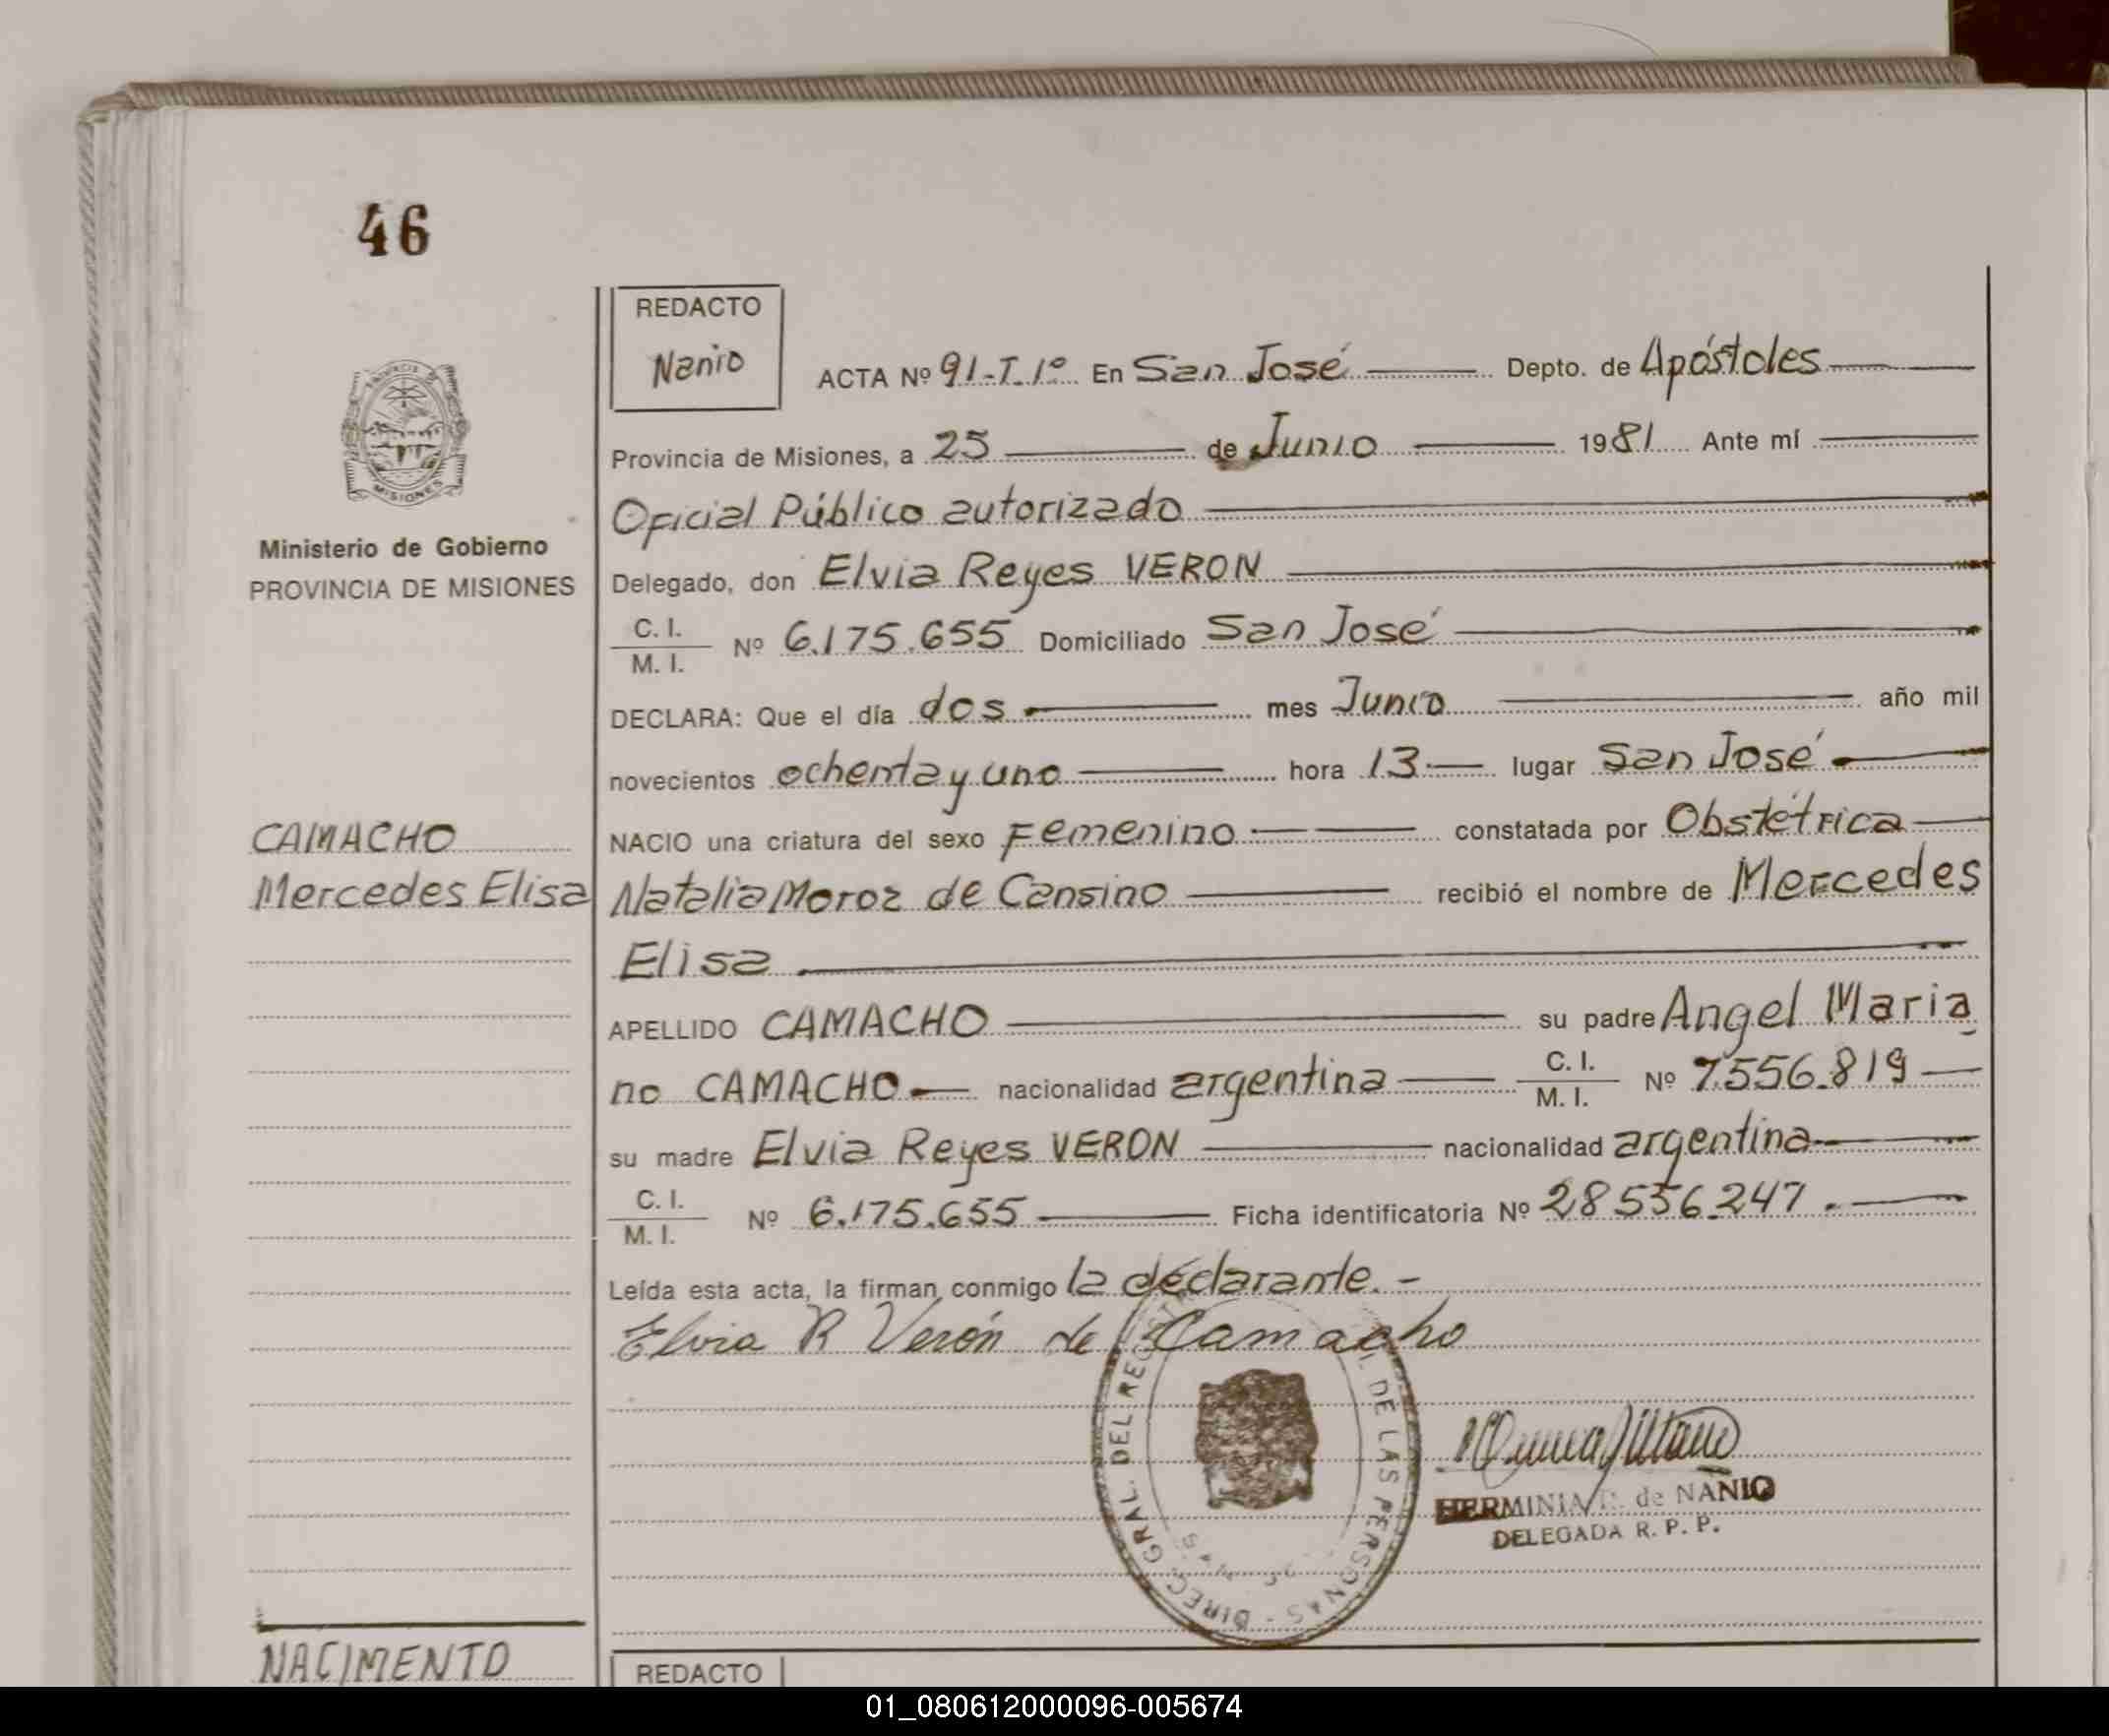 46
REDACTO
Nanio
ACTA Nº 91-T.1º En San José Depto. de Apóstoles
Provincia de Misiones, a 25 de Junio 1981 Ante mí
Oficial Público autorizado
MISIONES
Ministerio de Gobierno
PROVINCIA DE MISIONES
Delegado, don Elvia Reyes VERON
C. I.
M. I. Nº 6.175.655 Domiciliado San José
DECLARA: Que el día dos mes Junio año mil
novecientos ochenta y uno hora 13 lugar San José
CAMACHO
Mercedes Elisa
NACIO una criatura del sexo Femenino constatada por Obstétrica
Natalia Moroz de Cansino recibió el nombre de Mercedes
Elisa
APELLIDO CAMACHO su padre Angel Maria
no CAMACHO nacionalidad argentina C. I.
M. I. Nº 7.556.819
su madre Elvia Reyes VERON nacionalidad argentina
C. I.
M. I. Nº 6.175.655 Ficha identificatoria Nº 28.556.247.
Leída esta acta, la firman conmigo la declarante.-
Elvia R Verón de Camacho
DIREC. GRAL. DEL DE LAS PERSONAS
HERMINIA de NANIO
DELEGADA R. P. P.
NACIMENTO
REDACTO
01_080612000096-005674